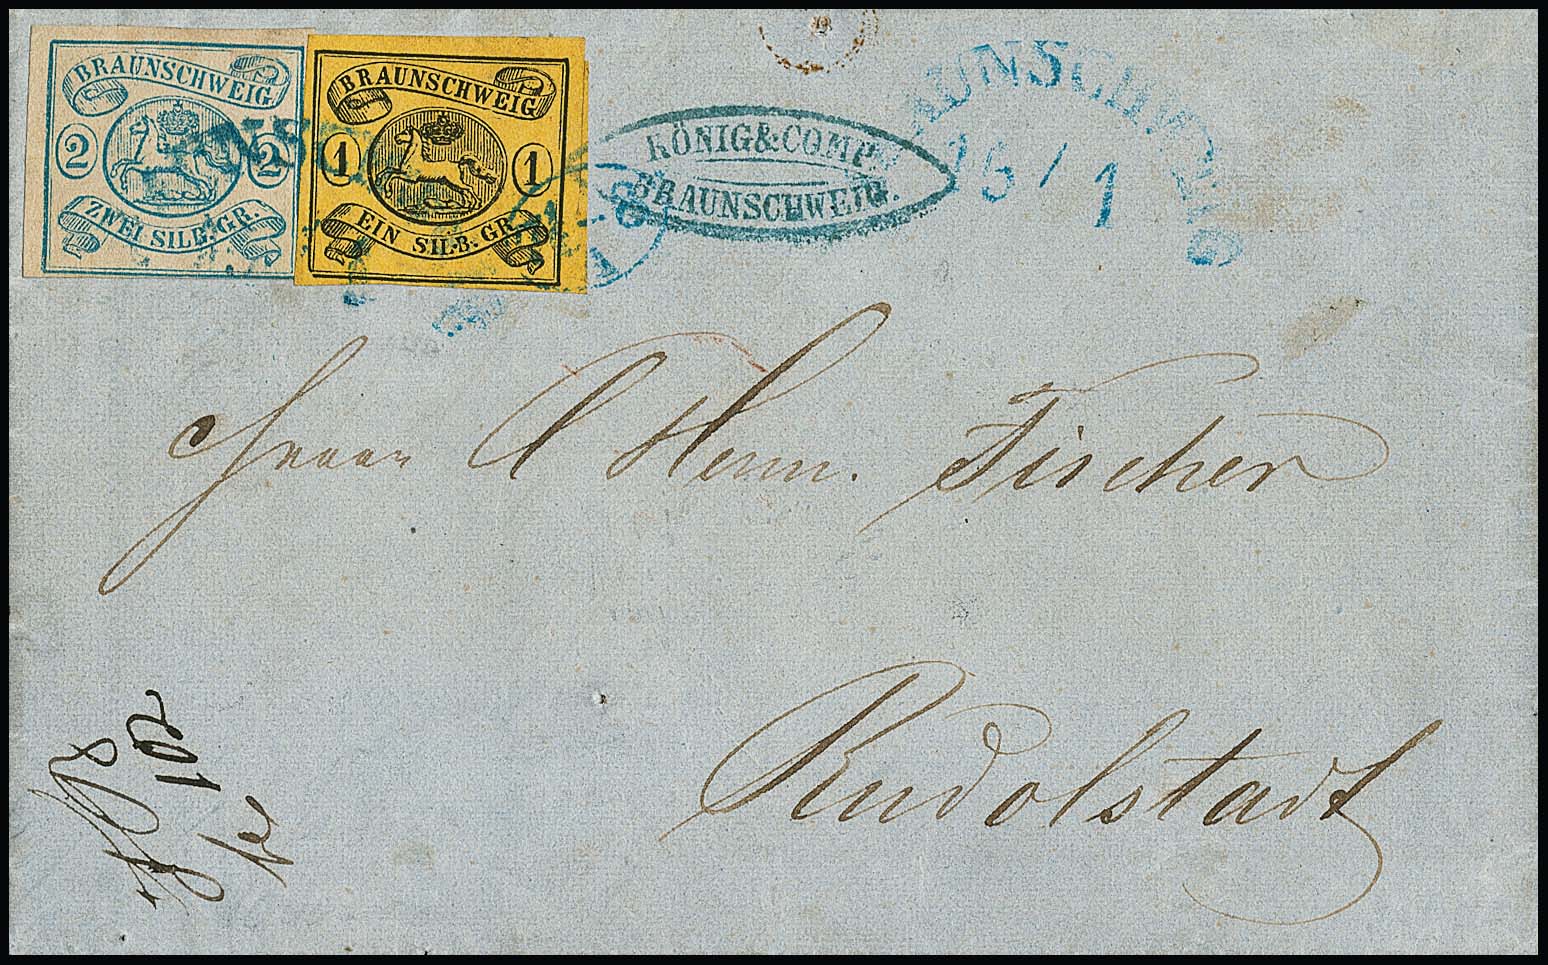 BRAUNSCHWEIG
2 2
ZWEI SILB. GR.
BRAUNSCHWEIG
1 1
EIN SILB. GR.
KÖNIG & COMP.
BRAUNSCHWEIG.
BRAUNSCHWEIG
26/1
Herrn A Herm. Fischer
Rudolstadt